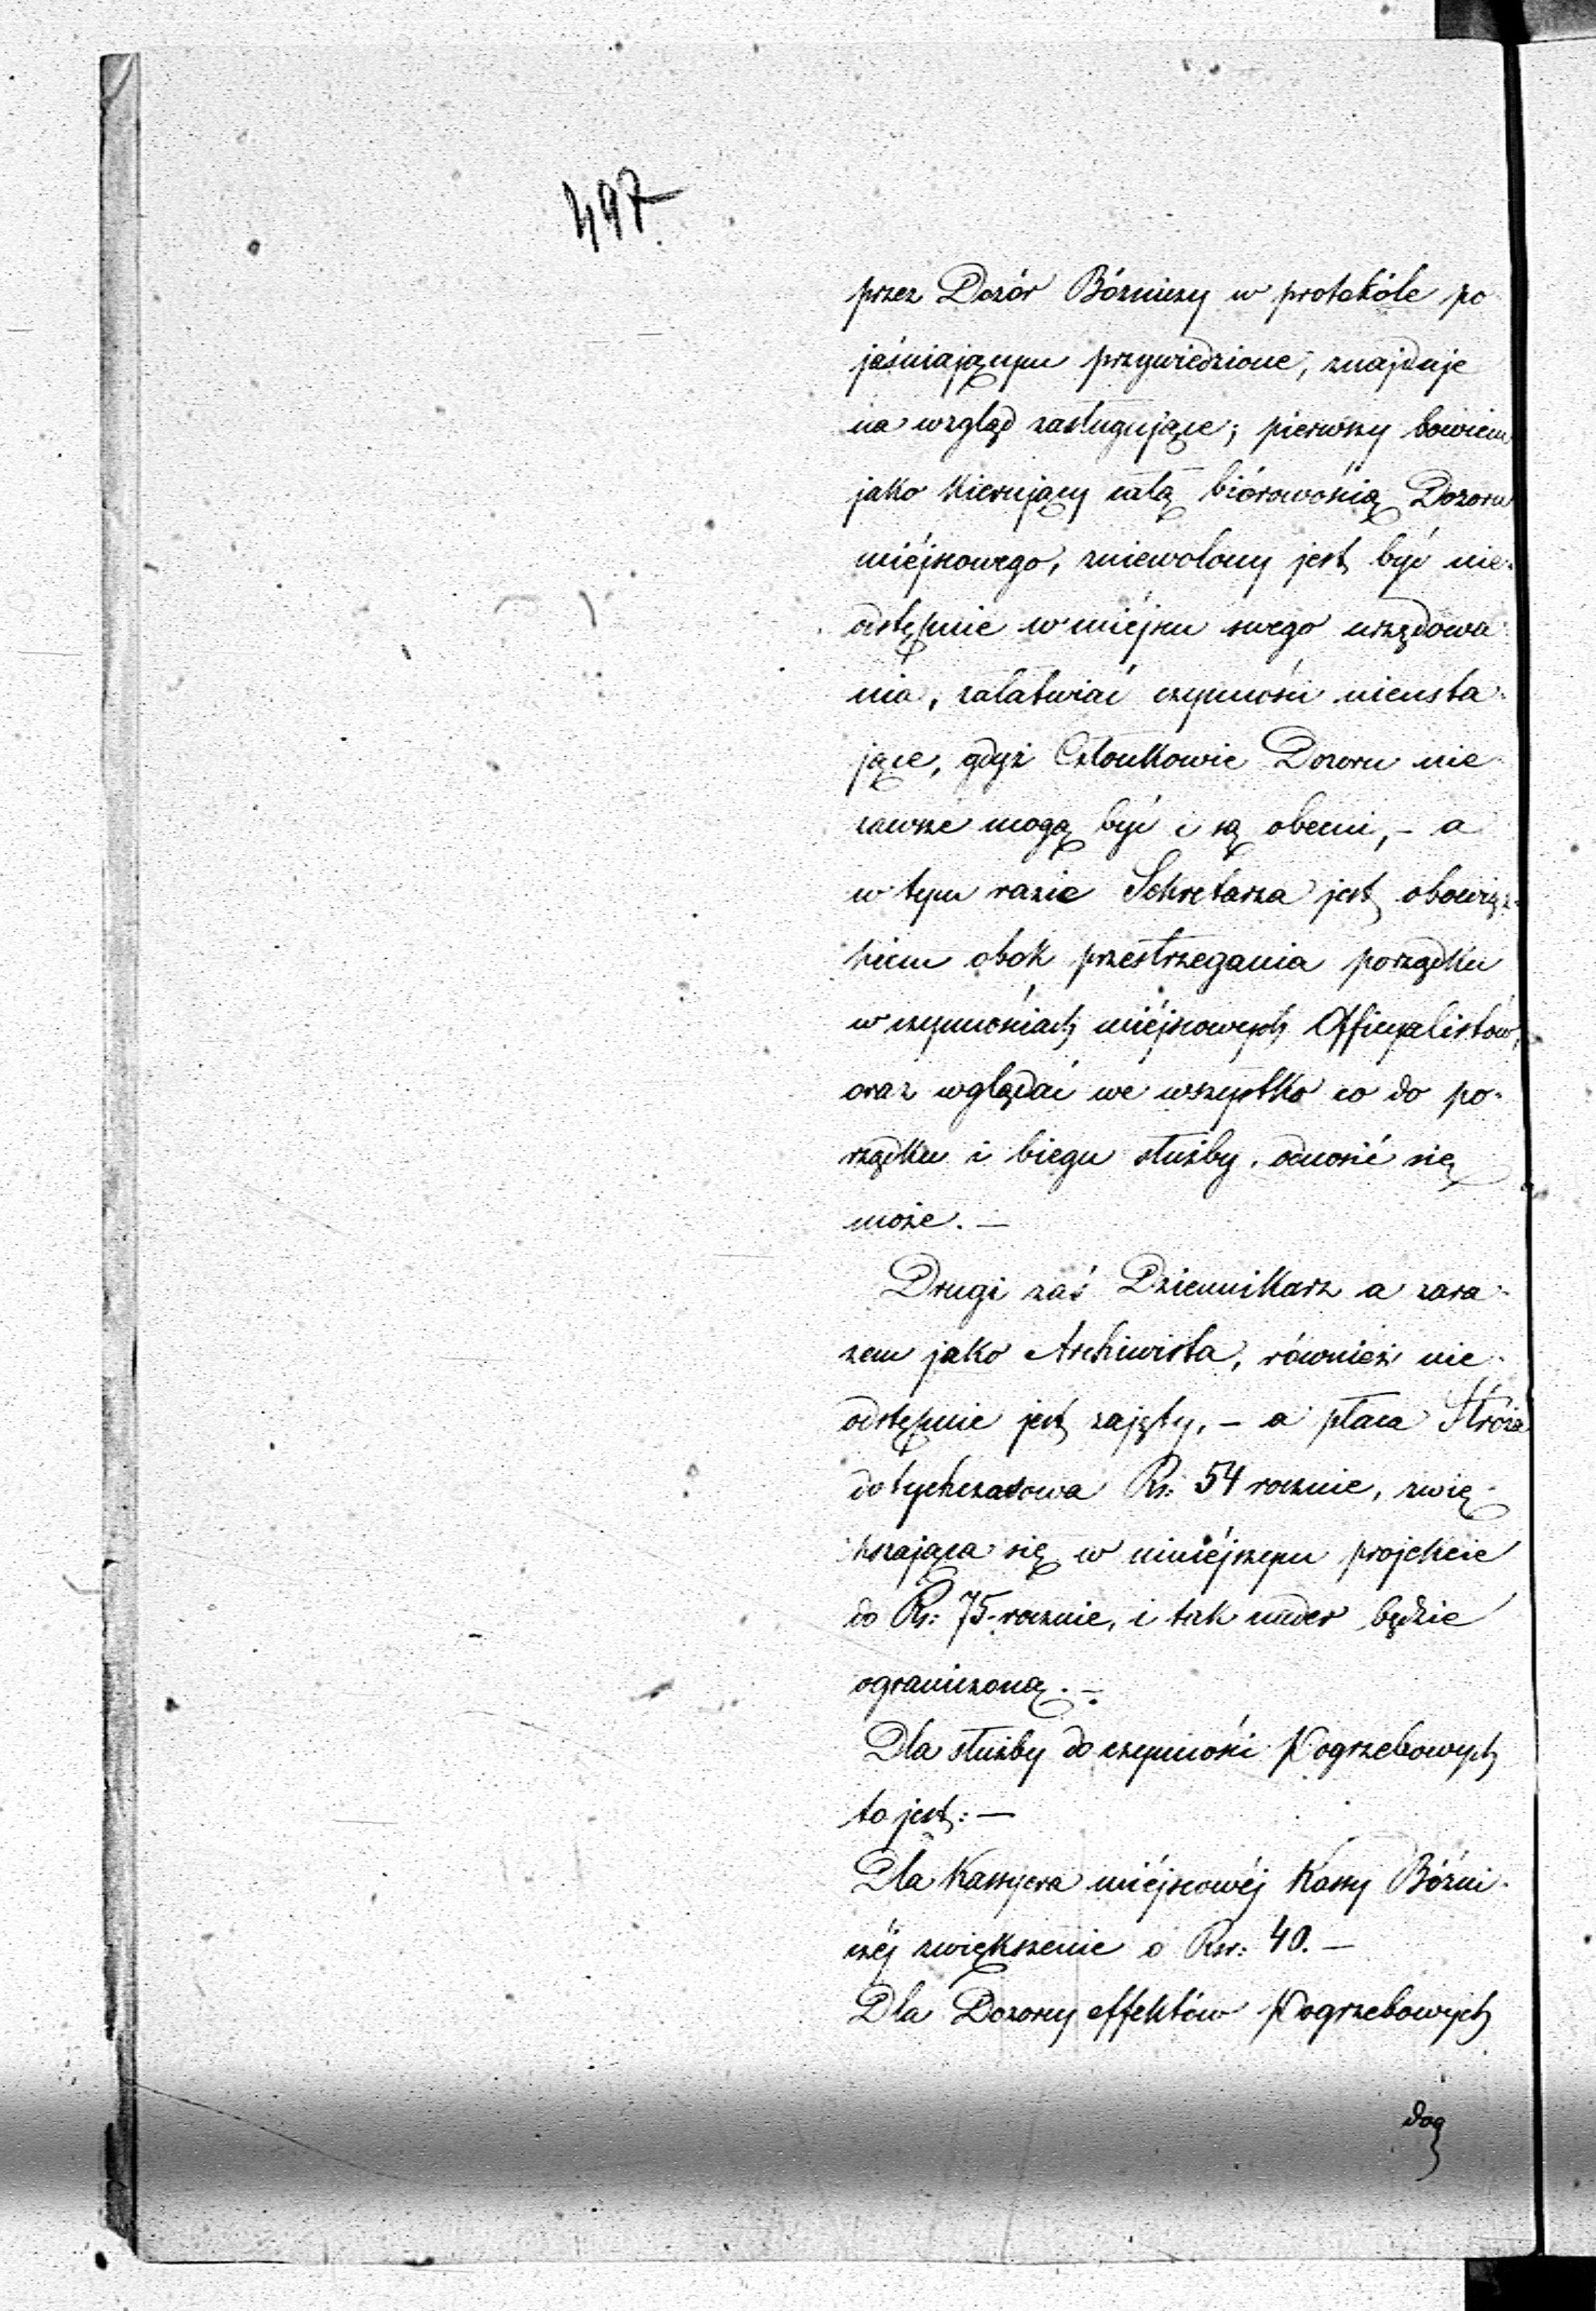 497
przez Dozór Bóżniczy w protokóle po
jaśniającym przywiedzione, znajduje
na wzgląd zasługujące; pierwszy bowiem
jako kierujący całą biórowością Dozoru
miéjscowego, zniewolony jest być nie-
odstępnie w miéjscu swego urzędowa
nia, załatwiać czynności nieusta-
jące, gdyż Członkowie Dozoru nie
zawsze mogą być i są obecni, – a
w tym razie Sekretarza jest obowiąz-
kiem obok przestrzegania porządku
w czynnościach miéjscowych Officyalistów,
oraz wglądać we wszystko co do po-
rządku i biegu służby, odnosić się
może. —
Drugi zaś Dziennikarz a zara-
zem jako Archiwista, również nie-
odstępnie jest zajęty, – a płaca Stróża
dotychczasowa Rs: 54 rocznie, zwię-
kszająca się w niniéjszym projekcie
do Rs: 75 rocznie, i tak nader będzie
ograniczoną. —
Dla służby do czynności Pogrzebowych
to jest: —
Dla Kassyera miéjscowéj Kassy Bóżni-
czéj zwiększenie o Rsr: 40. —
Dla Dozorcy effektów Pogrzebowych